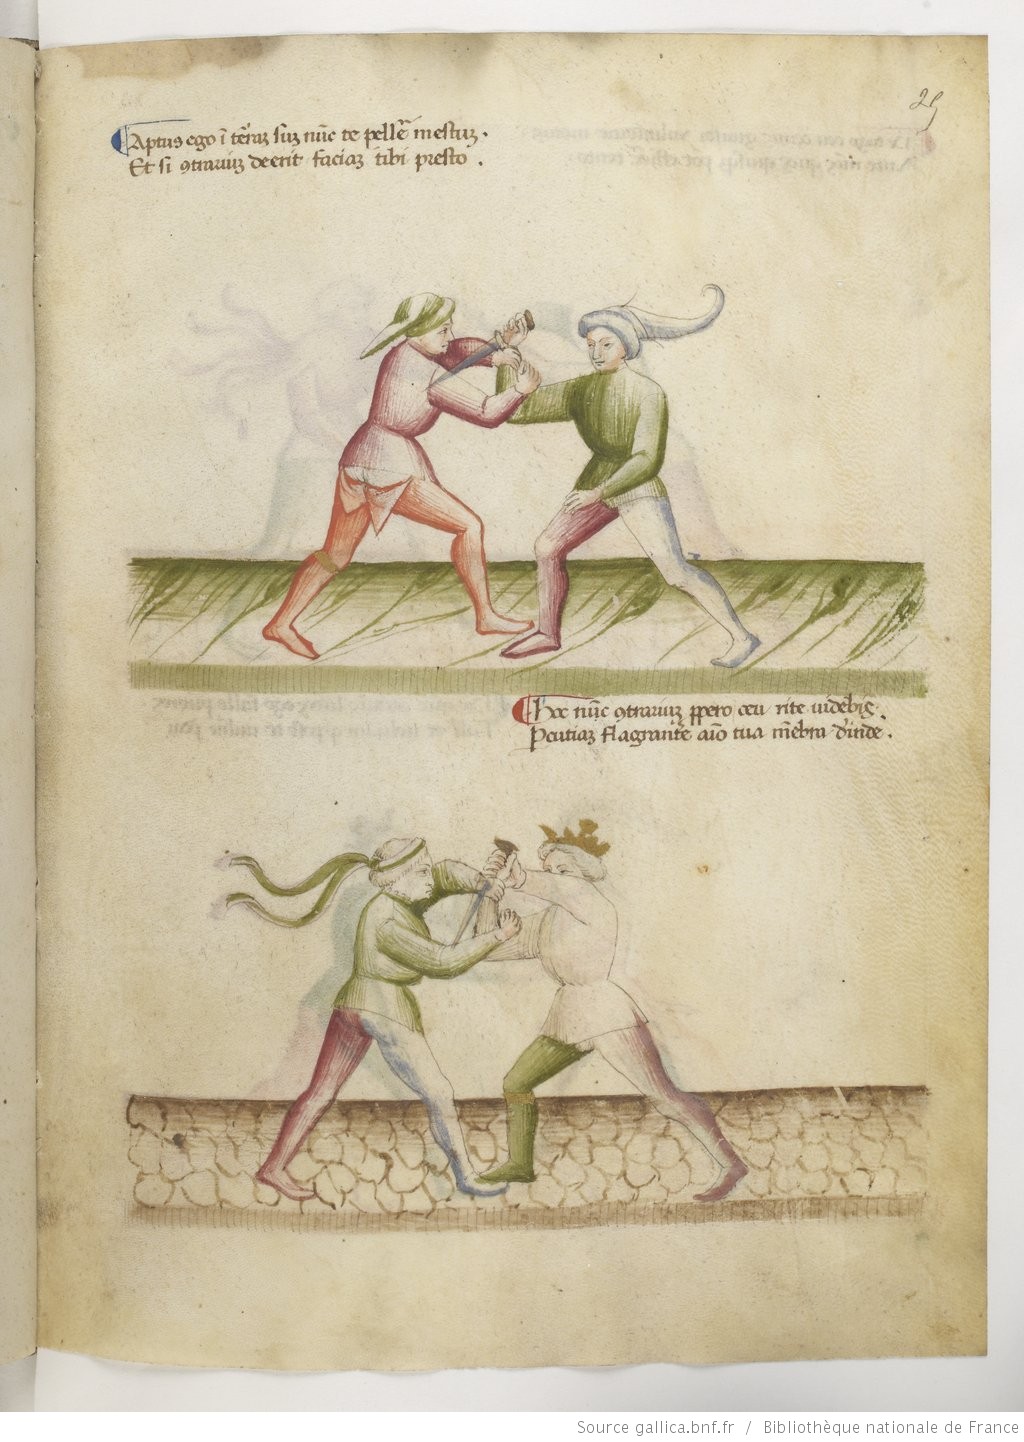 29
Aptus ego ī terā suʒ nūc te pellē mestuʒ.
Et si ꝯtrariuʒ deerit faciaʒ tibi presto.
Hoc nūc ꝯtrariuʒ ꝓpero ceu rite uidebis.
Ꝑcutiaʒ flagrante aīo tua mēbra deinde.
Source gallica.bnf.fr / Bibliothèque nationale de France